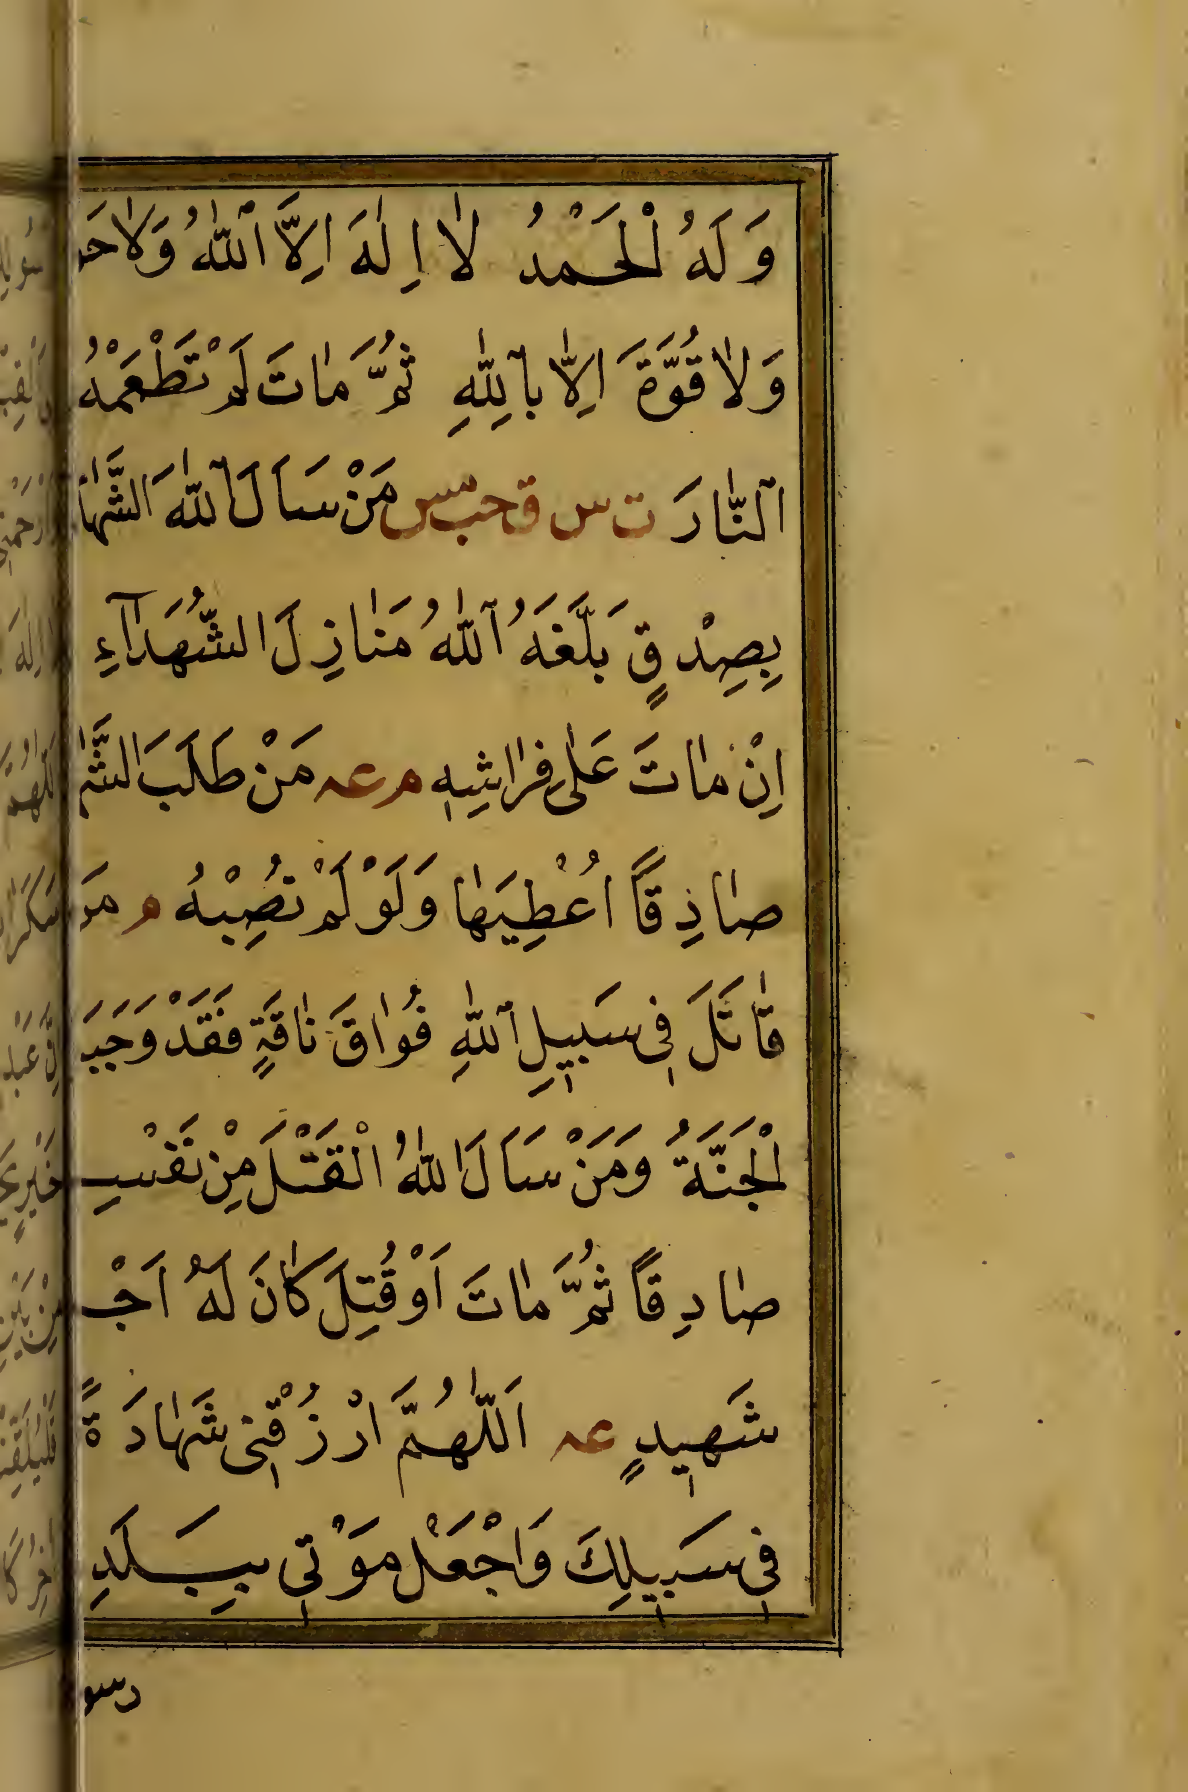 وَلَهُ الْحَمْدُ لَا اِلٰهَ اِلَّا اللّٰهُ وَلَا حَو
وَلَا قُوَّةَ اِلَّا بِاللّٰهِ ثُمَّ مَاتَ لَمْ تَطْعَمْهُ
النَّارَ ت س ق حب مس مَنْ سَاَلَ اللّٰهَ الشَّهَا
بِصِدْقٍ بَلَّغَهُ اللّٰهُ مَنَازِلَ الشُّهَدَآءِ
اِنْ مَاتَ عَلٰى فِرَاشِهِ م عه مَنْ طَلَبَ الشَّهَ
صَادِقًا اُعْطِيَهَا وَلَوْ لَمْ تُصِبْهُ م مَنْ
قَاتَلَ فِي سَبِيلِ اللّٰهِ فُوَاقَ نَاقَةٍ فَقَدْ وَجَبَ
الْجَنَّةُ وَمَنْ سَاَلَ اللّٰهُ الْقَتْلَ مِنْ نَفْسِ
صَادِقًا ثُمَّ مَاتَ اَوْ قُتِلَ كَانَ لَهُ اَجْ
شَهِيدٍ عه اَللّٰهُمَّ ارْزُقْنِي شَهَادَةً
فِي سَبِيلِكَ وَاجْعَلْ مَوْتِي بِبَلَدِ
رسو